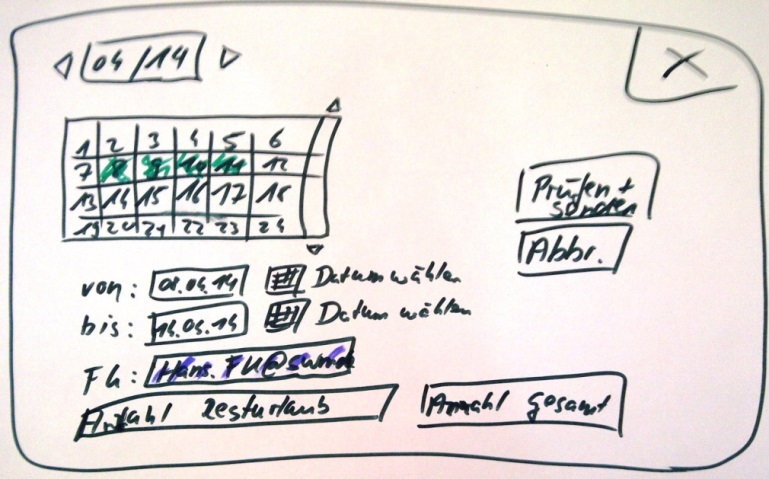 04/14
X
1 2 3 4 5 6
7 8 9 10 11 12
13 14 15 16 17 18
19 20 21 22 23 24
Prüfen +
senden
Abbr.
von: 08.04.14 Datum wählen
bis: 14.04.14 Datum wählen
FK: Hans.FK@
Anzahl Resturlaub
Anzahl gesamt